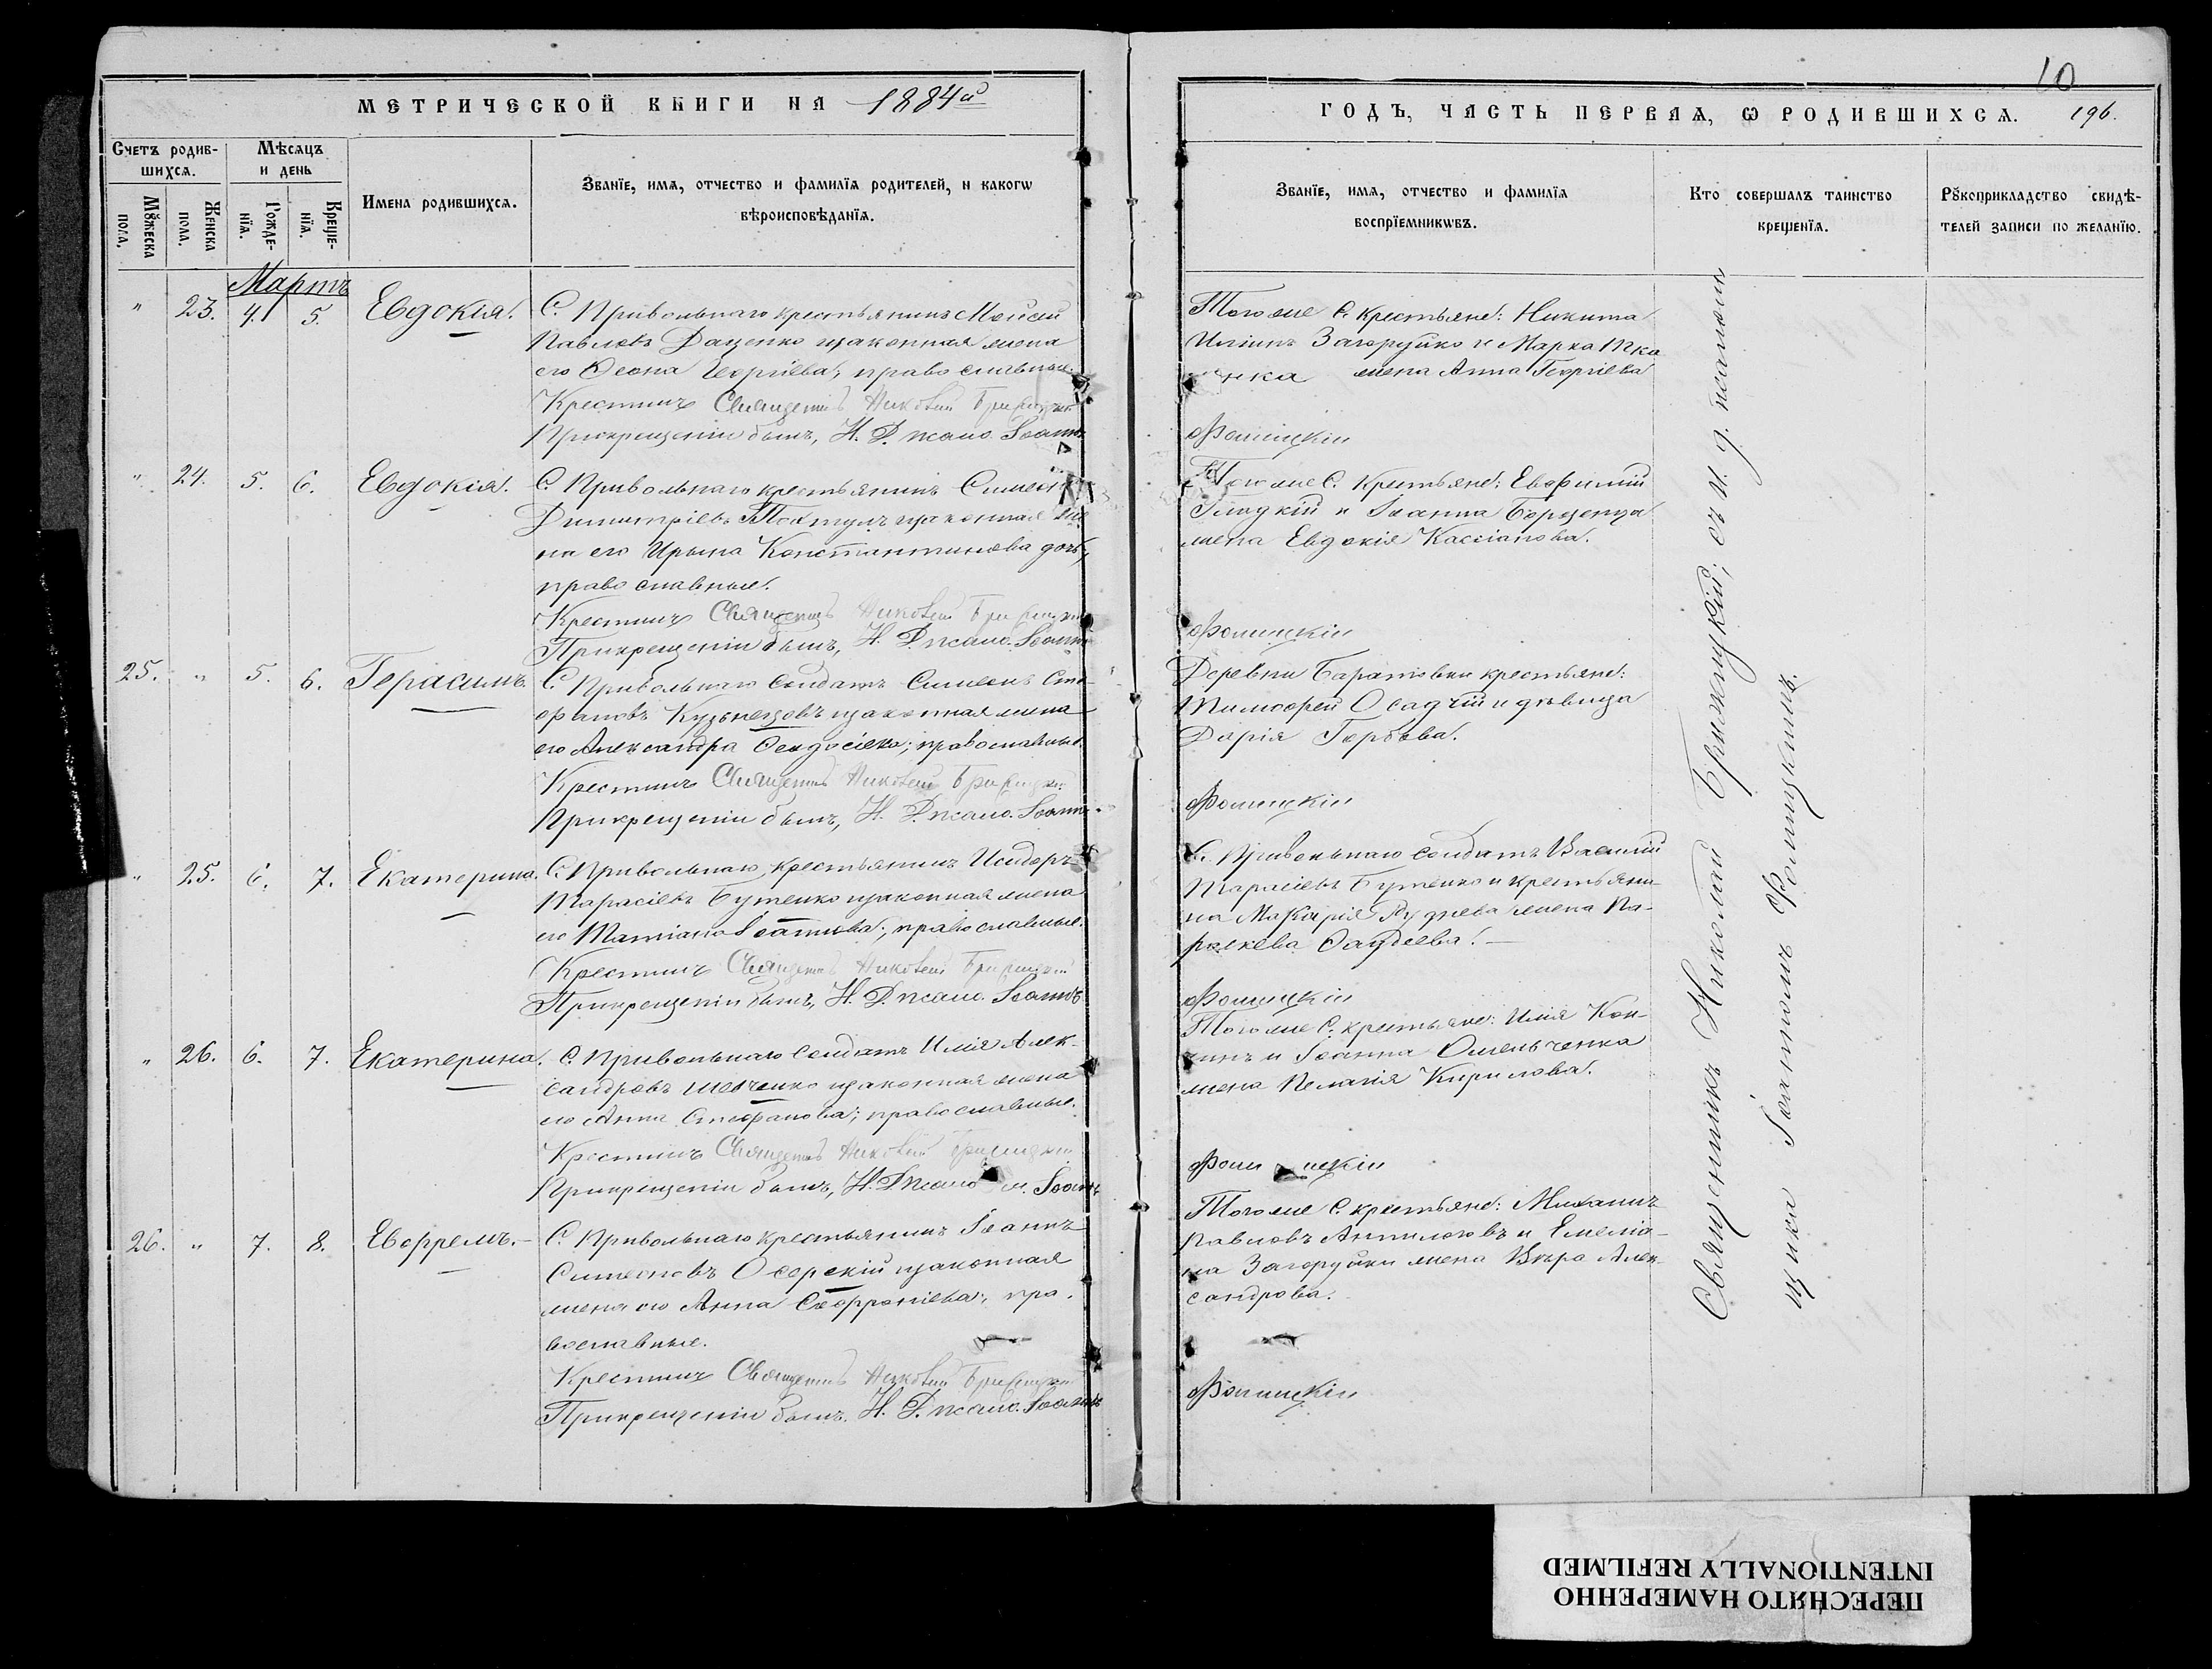 МЕТРИЧЕСКОЙ КНИГИ НА 1884й
Счетъ родившихся.
Мѣсяцъ и день
Мꙋжеска пола.
Женска пола.
Рождения.
Крещения.
Имена родившихся.
Званїе, имѧ, отчество и фамилїѧ родителей, и какогѡ вѣроисповѣданїѧ.
Мартъ
" 23. 4. 5. Евдокія.
С. Привольнаго крестьянинъ Моисей
Павловъ Даценко и законная жена
его Георгіева, православные.
Крестилъ Священникъ Николай
При крещеніи былъ, И. Д. псалом. Іоаннъ
" 24. 5. 6. Евдокія.
С. Привольнаго крестьянинъ Симеонъ
Димитріевъ и законная же
на его Ирина Константинова дочь,
православные.
Крестилъ Священникъ Николай
При крещеніи былъ, И. Д. псалом. Іоаннъ
25. " 5. 6. Герасимъ.
С. Привольнаго солдатъ Симеонъ Сте-
фановъ Кузьнецовъ и законная жена
его Александра Феодосіева; православные.
Крестилъ Священникъ Николай
При крещеніи былъ, И. Д. псалом. Іоаннъ
" 25. 6. 7. Екатерина.
С. Привольнаго, крестьянинъ Исидоръ
Тарасіевъ Бутенко и законная жена
его Татіана Іоаннова; православные.
Крестилъ Священникъ Николай
При крещеніи былъ, И. Д. псалом. Іоаннъ
" 26. 6. 7. Екатерина.
С. Привольнаго солдатъ Илія Алек-
сандровъ Шевченко и законная жена
его Анна Стефанова; православные.
Крестилъ Священникъ Николай
При крещеніи былъ, И. Д. псалом. Іоаннъ
26. " 7. 8. Ефремъ.
С. Привольнаго крестьянинъ Іоаннъ
Симеоновъ Озерскій и законная
жена его Анна Софроніева, пра-
вославные.
Крестилъ Священникъ Николай
При крещеніи былъ. И. Д. псалом. Іоаннъ
10
ГОДЪ, ЧАСТЬ ПЕРВАѦ, Ѡ РОДИВШИХСѦ. 196.
Званїе, имѧ, отчество и фамилїѧ воспрїемникѡвъ.
Кто совершалъ таинство крещенїѧ.
Рꙋкоприкладство свидѣтелей записи по желанїю.
Того же С. крестьяне: Никита
Загоруйко и Марка Тка
ченка жена Анна Георгіева
Фомицкій
Того же С. крестьяне: Евфимій
Гладкій и Іоанна Борщенка
жена Евдокія Кассіанова.
Фомицкій
Деревни Баратовки крестьяне:
Тимофей Осадчій и дѣвица
Дарія
Фомицкій
С. Привольнаго солдатъ Василій
Тарасіевъ Бутенко и крестьяни-
на Макарія жена Па-
раскева Фаддеева.
Фомицкій
Того же С. крестьяне: Илія
и Іоанна Омельченка
жена Пелагія Кирилова.
Фомицкій
Того же С. крестьяне: Михаилъ
Павловъ и Емеліа-
на Загоруйки жена Вѣра Алек-
сандрова.
Фомицкій
Священникъ Николай съ и. д. псалом-
щика Іоанномъ Фомицкимъ.
ПЕРЕСНЯТО НАМЕРЕННО
INTENTIONALLY REFILMED